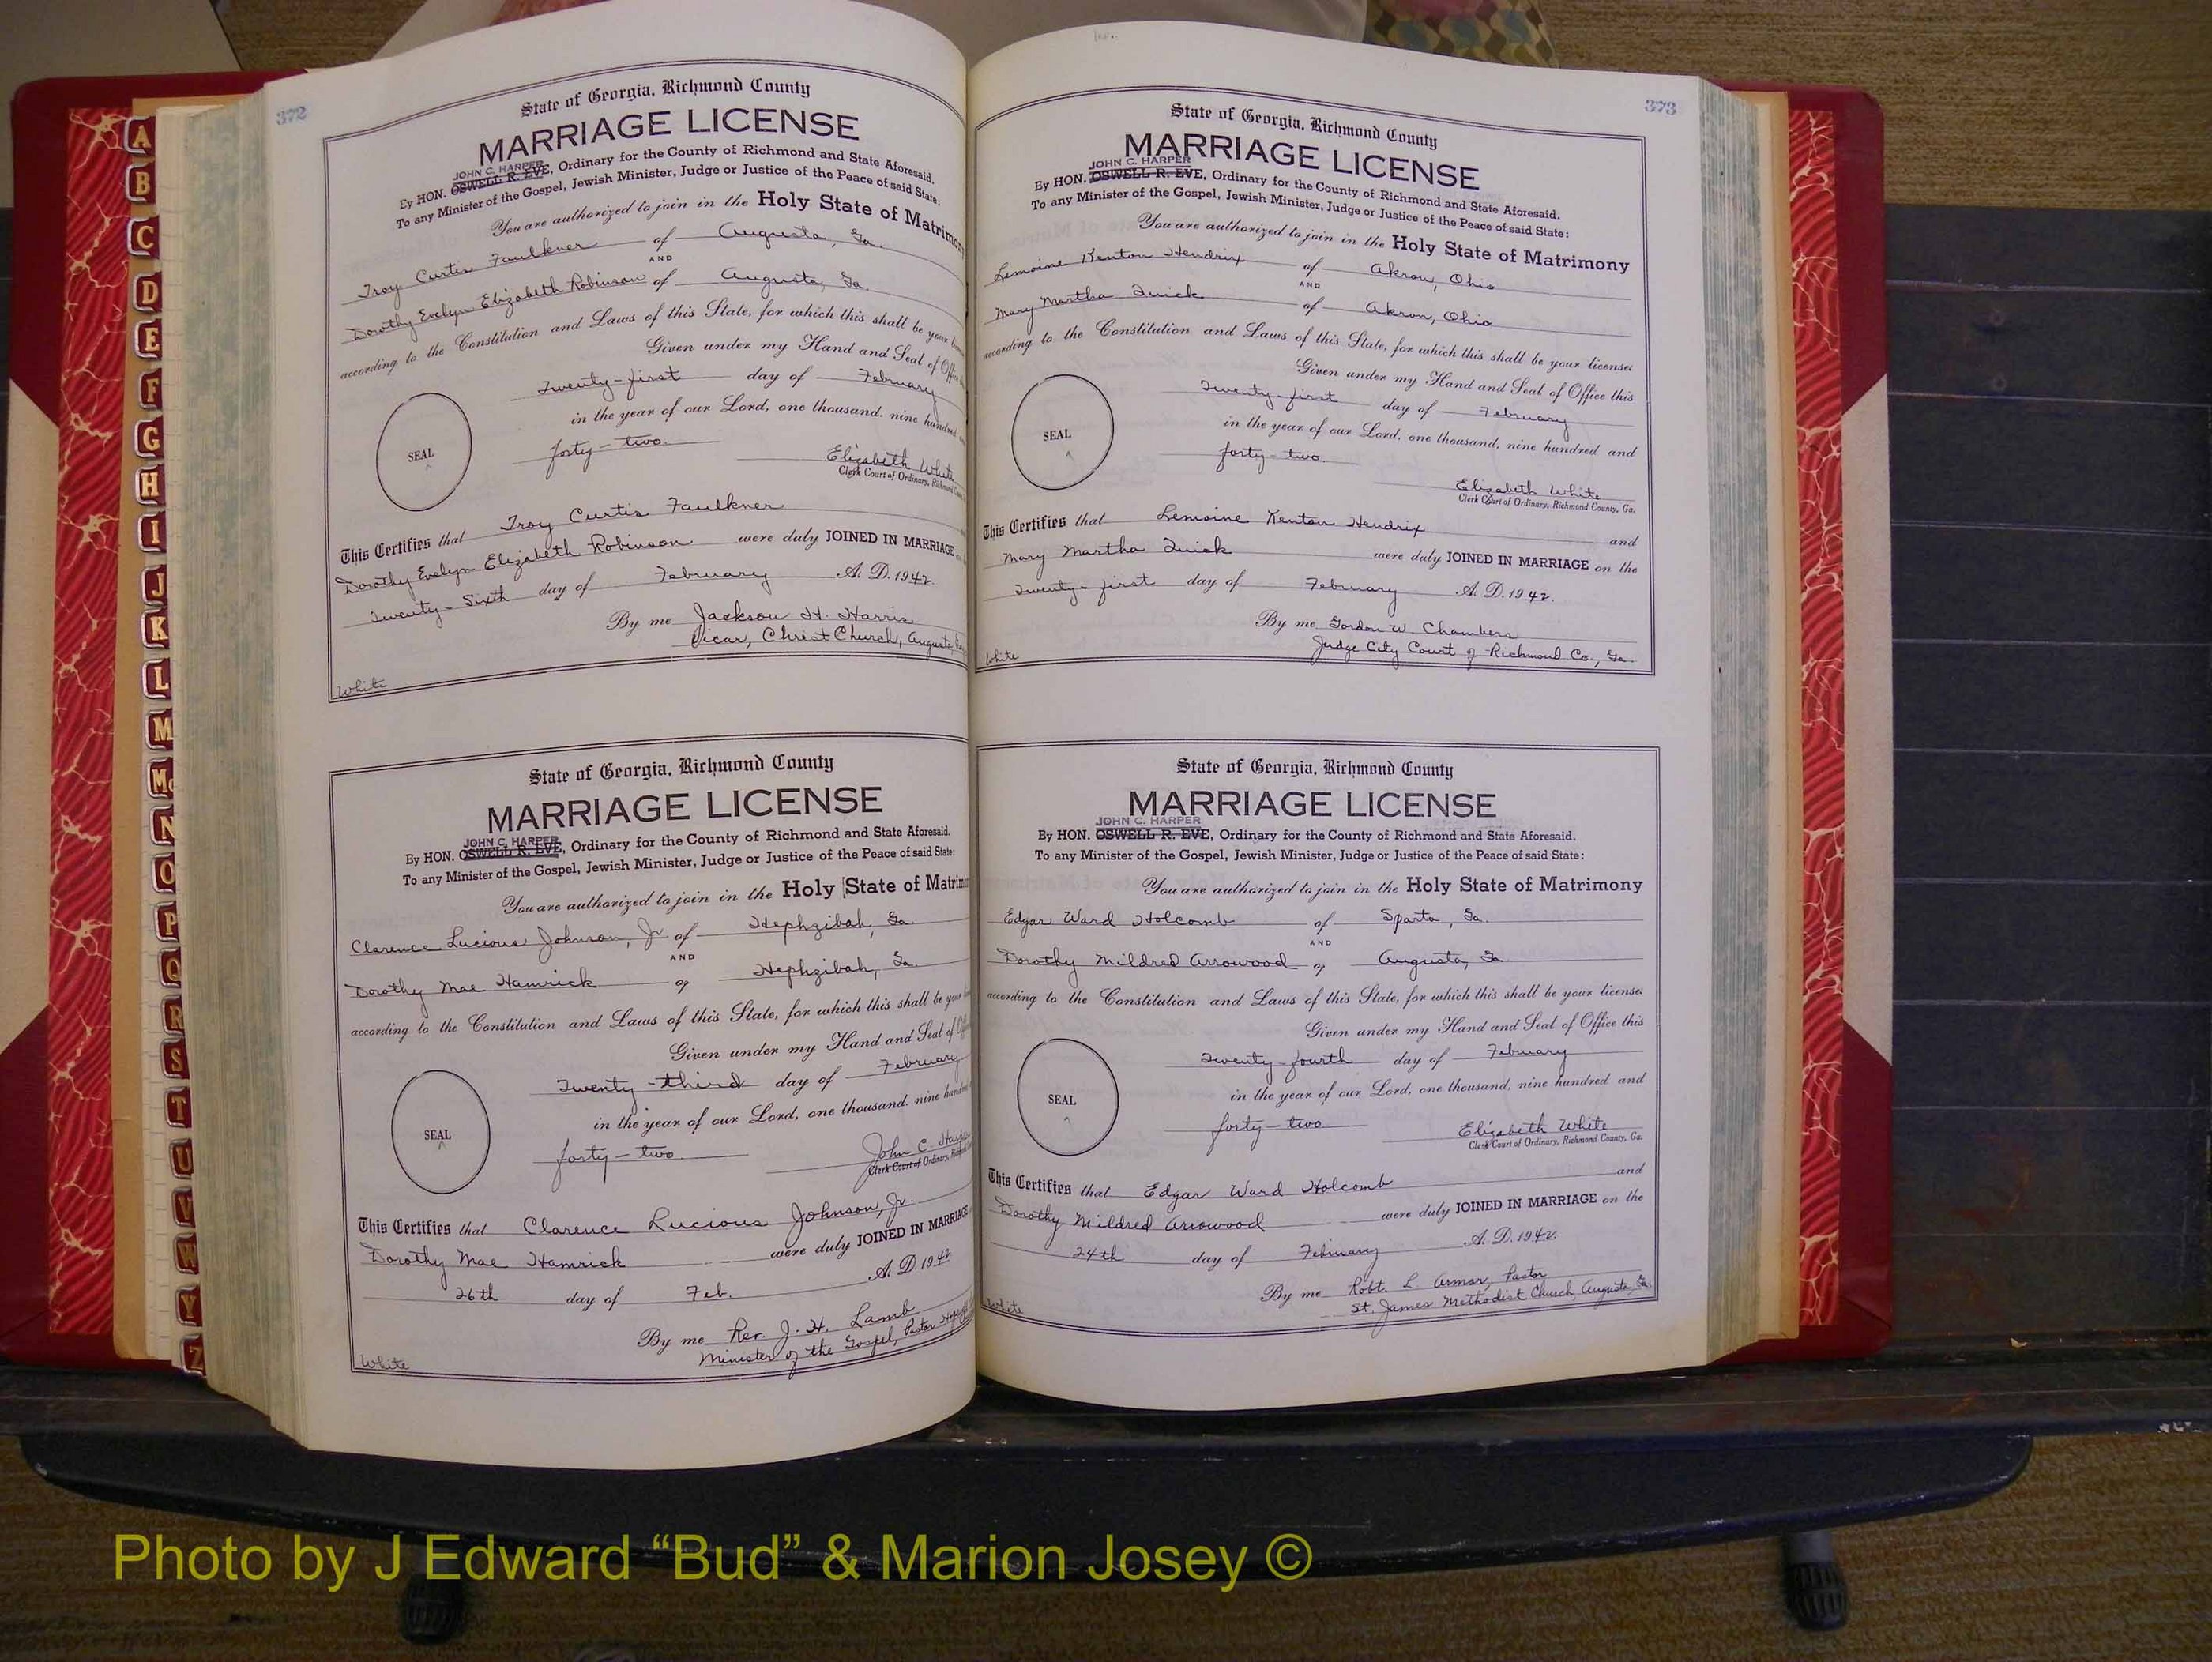 A
B
C
D
E
F
G
H
I
J
K
L
M
Mc
N
O
P
Q
R
S
T
U
V
W
Y
Z
372
State of Georgia, Richmond County
MARRIAGE LICENSE
JOHN C. HARPER
By HON. OSWELL R. EVE, Ordinary for the County of Richmond and State Aforesaid.
To any Minister of the Gospel, Jewish Minister, Judge or Justice of the Peace of said State:
You are authorized to join in the Holy State of Matrimony
Troy Curtis Faulkner of Augusta, Ga.
AND
Dorothy Evelyn Elizabeth Robinson of Augusta, Ga.
according to the Constitution and Laws of this State, for which this shall be your
Given under my Hand and Seal of
Twenty-first day of February
in the year of our Lord, one thousand, nine hundred
forty-two.
SEAL
Elizabeth White
Clerk Court of Ordinary, Richmond
This Certifies that Troy Curtis Faulkner
Dorothy Evelyn Elizabeth Robinson were duly JOINED IN MARRIAGE
Twenty-Sixth day of February A. D. 1942.
By me Jackson H. Harris
Vicar, Christ Church, Augusta,
White
State of Georgia, Richmond County
MARRIAGE LICENSE
JOHN C. HARPER
By HON. OSWELL R. EVE, Ordinary for the County of Richmond and State Aforesaid.
To any Minister of the Gospel, Jewish Minister, Judge or Justice of the Peace of said State:
You are authorized to join in the Holy State of
Clarence Lucious Johnson, Jr of Hephzibah, Ga.
AND
Dorothy Mae Hamrick of Hephzibah, Ga.
according to the Constitution and Laws of this State, for which this shall be your
Given under my Hand and Seal of
Twenty-third day of February
in the year of our Lord, one thousand, nine
forty-two
SEAL
John C.
Clerk Court of Ordinary,
This Certifies that Clarence Lucious Johnson, Jr.
Dorothy Mae Hamrick were duly JOINED IN MARRIAGE
26th day of Feb. A. D. 1942
By me Rev. J. H. Lamb
Minister of the Gospel, Pastor
White
373
State of Georgia, Richmond County
MARRIAGE LICENSE
JOHN C. HARPER
By HON. OSWELL R. EVE, Ordinary for the County of Richmond and State Aforesaid.
To any Minister of the Gospel, Jewish Minister, Judge or Justice of the Peace of said State:
You are authorized to join in the Holy State of Matrimony
Lemoine Kenton Hendrix of Akron, Ohio
AND
Mary Martha Quick of Akron, Ohio
according to the Constitution and Laws of this State, for which this shall be your license:
Given under my Hand and Seal of Office this
Twenty-first day of February
in the year of our Lord, one thousand, nine hundred and
forty-two
SEAL
Elizabeth White
Clerk Court of Ordinary, Richmond County, Ga.
This Certifies that Lemoine Kenton Hendrix and
Mary Martha Quick were duly JOINED IN MARRIAGE on the
Twenty-first day of February A. D. 1942.
By me Gordon W. Chambers
Judge City Court of Richmond Co., Ga.
White
State of Georgia, Richmond County
MARRIAGE LICENSE
JOHN C. HARPER
By HON. OSWELL R. EVE, Ordinary for the County of Richmond and State Aforesaid.
To any Minister of the Gospel, Jewish Minister, Judge or Justice of the Peace of said State:
You are authorized to join in the Holy State of Matrimony
Edgar Ward Holcomb of Sparta, Ga.
AND
Dorothy Mildred Arrowood of Augusta, Ga
according to the Constitution and Laws of this State, for which this shall be your license:
Given under my Hand and Seal of Office this
Twenty-fourth day of February
in the year of our Lord, one thousand, nine hundred and
forty-two
SEAL
Elizabeth White
Clerk Court of Ordinary, Richmond County, Ga.
This Certifies that Edgar Ward Holcomb and
Dorothy Mildred Arrowood were duly JOINED IN MARRIAGE on the
24th day of February A. D. 1942.
By me Robt. L. Armor, Pastor
St. James Methodist Church, Augusta, Ga.
White
Photo by J Edward “Bud” & Marion Josey ©